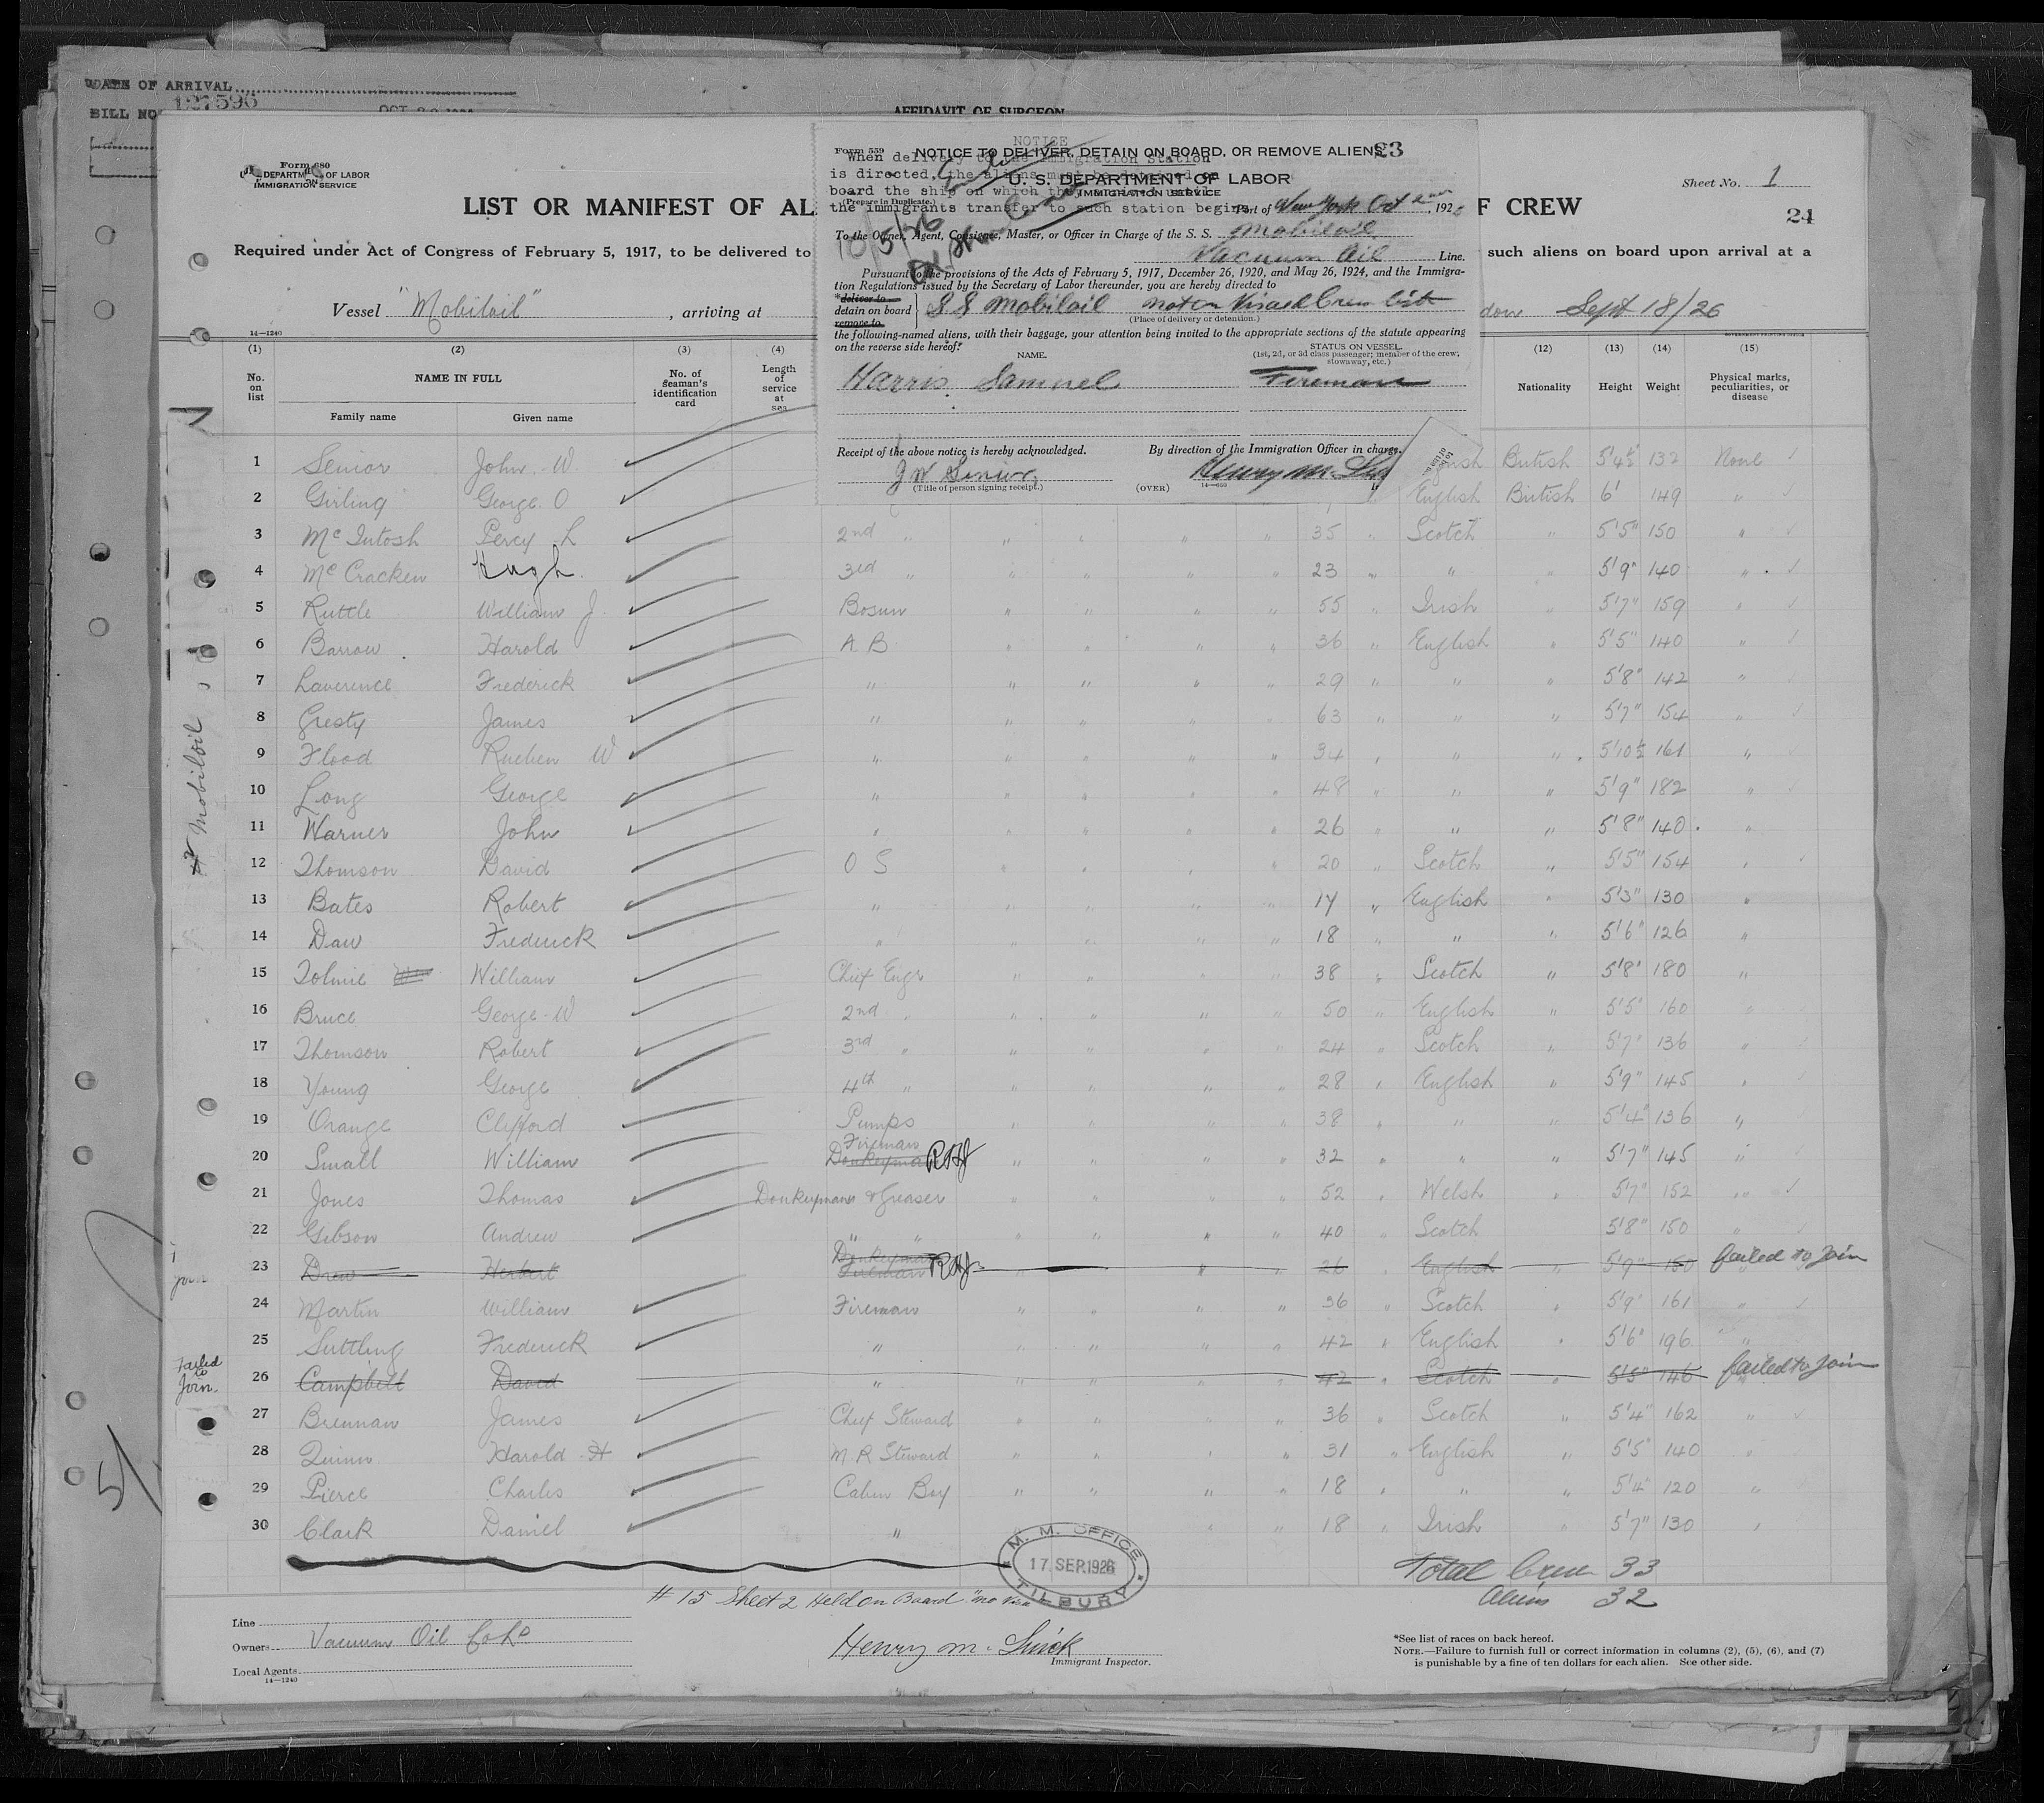 DATE OF ARRIVAL
BILL NO. 127596
AFFIDAVIT OF SURGEON
Form 680
U.S. DEPARTMENT OF LABOR
IMMIGRATION SERVICE
LIST OR MANIFEST OF AL
F CREW
Sheet No. 1
24
Required under Act of Congress of February 5, 1917, to be delivered to
such aliens on board upon arrival at a
Vessel "Mobiloil", arriving at
Sept 18/26
14—1240
NOTICE
When delivery to the immigration station
is directed, the aliens must be detained on
board the ship on which they arrived until
the immigrants transfer to such station begins.
Form 559
NOTICE TO DELIVER, DETAIN ON BOARD, OR REMOVE ALIENS
23
U. S. DEPARTMENT OF LABOR
IMMIGRATION SERVICE
(Prepare in Duplicate.)
Port of New York Oct 2nd, 192
To the Owner, Agent, Consignee, Master, or Officer in Charge of the S. S. Mobiloil
Vacuum Oil Line.
Pursuant to the provisions of the Acts of February 5, 1917, December 26, 1920, and May 26, 1924, and the Immigra-
tion Regulations issued by the Secretary of Labor thereunder, you are hereby directed to
*deliver to
detain on board
remove to
SS Mobiloil not on Visaed Crew list
(Place of delivery or detention.)
the following-named aliens, with their baggage, your attention being invited to the appropriate sections of the statute appearing
on the reverse side hereof:
NAME.
STATUS ON VESSEL.
(1st, 2d, or 3d class passenger; member of the crew; stowaway, etc.)
Harris, Samuel Fireman
Receipt of the above notice is hereby acknowledged.
By direction of the Immigration Officer in charge.
J W Senior
Henry M.
(Title of person signing receipt.)
(OVER)
14—660
(1) (2) (3) (4) (12) (13) (14) (15)
No. on list
NAME IN FULL
Family name
Given name
No. of seaman's identification card
Length of service at sea
Nationality
Height
Weight
Physical marks, peculiarities, or disease
1 Senior John W. British 5'4½ 132 None
2 Girling George O English British 6' 149 "
3 McIntosh Percy L 2nd " " " " " 35 " Scotch " 5'5" 150 "
4 McCracken Hugh. 3rd " " " " " 23 " " " 5'9" 140 "
5 Ruttle William J. Bosun " " " " 55 " Irish " 5'7" 159 "
6 Barrow Harold A B " " " " 36 " English " 5'5" 140 "
7 Laverence Frederick " " " " " 29 " " " 5'8" 142 "
8 Gresty James " " " " " 63 " " " 5'7" 154 "
9 Flood Rueben W " " " " " 34 " " " 5'10½ 161 "
10 Long George " " " " " 48 " " " 5'9" 182 "
11 Warner John " " " " " 26 " " " 5'8" 140 "
12 Thomson David O S " " " " 20 " Scotch " 5'5" 154 "
13 Bates Robert " " " " " 17 " English " 5'3" 130 "
14 Daw Frederick " " " " " 18 " " " 5'6" 126 "
15 Tolmie William Chief Engr " " " " 38 " Scotch " 5'8" 180 "
16 Bruce George W 2nd " " " " " 50 " English " 5'5" 160 "
17 Thomson Robert 3rd " " " " " 24 " Scotch " 5'7" 136 "
18 Young George 4th " " " " " 28 " English " 5'9" 145 "
19 Orange Clifford Pumps " " " " 38 " " " 5'4" 136 "
20 Small William Fireman Donkeyman " " " " 32 " " " 5'7" 145 "
21 Jones Thomas Donkeyman & Greaser " " " " 52 " Welsh " 5'7" 152 "
22 Gibson Andrew " " " " " " 40 " Scotch 5'8" 150 "
23 Drew Herbert Donkeyman Fireman " 26 English " 5'9" 150 failed to join
24 Martin William Fireman " " " " 36 " Scotch " 5'9" 161 "
25 Suttling Frederick " " " " " 42 " English " 5'6" 196 "
26 Campbell David " " " " " 42 " Scotch " 5'5" 146 failed to join
27 Brennan James Chief Steward " " " " 36 " Scotch " 5'4" 162 "
28 Quinn Harold H M R Steward " " " " 31 " English " 5'5" 140 "
29 Pierce Charles Cabin Boy " " " " 18 " " " 5'4" 120 "
30 Clark Daniel " " " 18 " Irish " 5'7" 130 "
Mobiloil
join
Failed to Join.
M. M. OFFICE
17 SEP. 1926
TILBURY
Total Crew 33
Aliens 32
# 15 Sheet 2 Held on Board "no Visa
Line
Owners Vacuum Oil Co Ld
Local Agents
14—1240
Henry M.
Immigrant Inspector.
*See list of races on back hereof.
NOTE.—Failure to furnish full or correct information in columns (2), (5), (6), and (7)
is punishable by a fine of ten dollars for each alien. See other side.